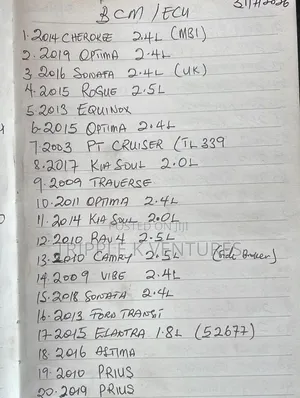 BCM / ECU
1. 2014 CHEROKEE 2.4L (MB1)
2. 2019 OPTIMA 2.4L
3 2016 SONATA 2.4L (UK)
4. 2015 ROGUE 2.5L
5 2013 EQUINOX
6. 2015 OPTIMA 2.4L
7. 2003 PT CRUISER (TL 339
8. 2017 KIA SOUL 2.0L
9. 2009 TRAVERSE
10. 2011 OPTIMA 2.4L
11. 2014 KIA SOUL 2.0L
POSTED ON jiji
12. 2010 RAV4 2.5L
TRIPPLE K VENTURES
13. 2010 CAMRY 2.5L
14 2009 VIBE 2.4L
15. 2018 SONATA 2.4L
16. 2013 FORD TRANSI
17. 2015 ELANTRA 1.8L (52677)
18. 2016 ALTIMA
19. 2010 PRIUS
20. 2019 PRIUS